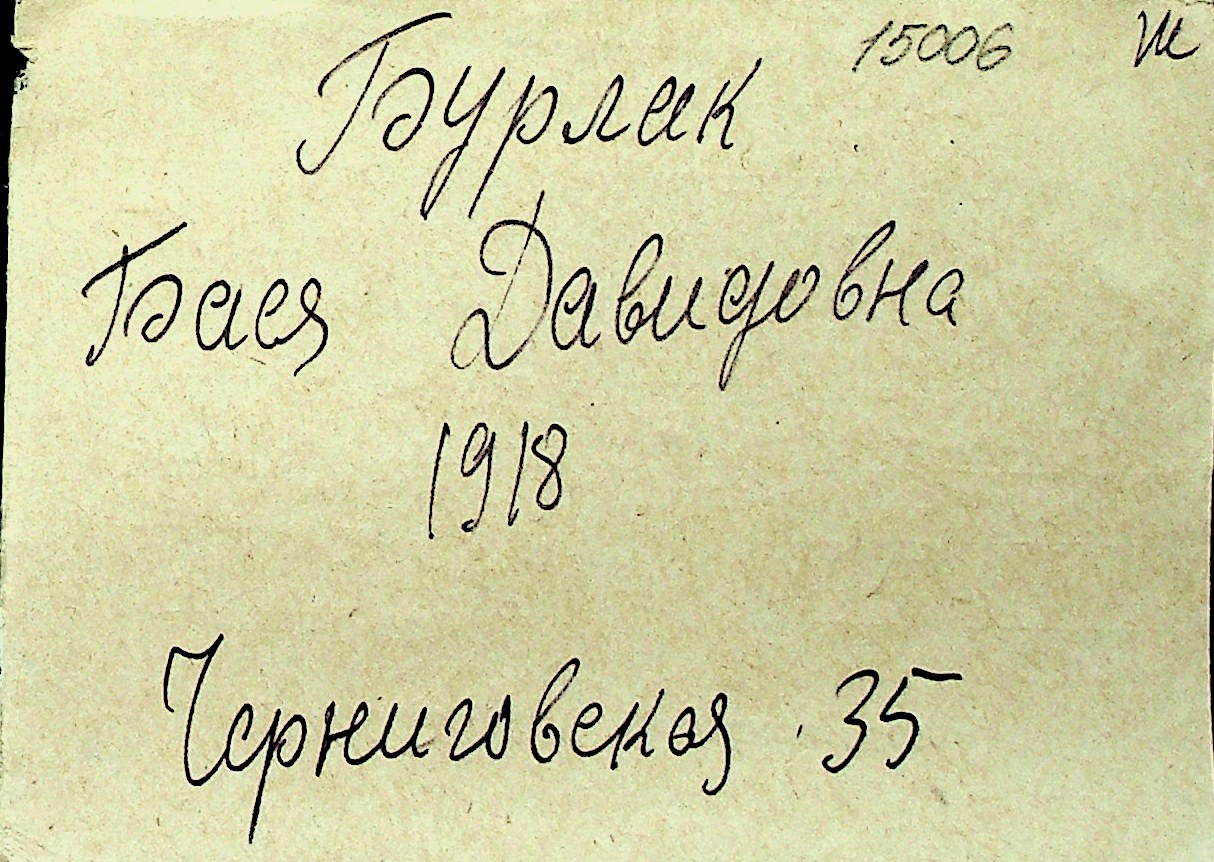 15006 Ж
Бурлак
Бася Давидовна
1918
Черниговская 35